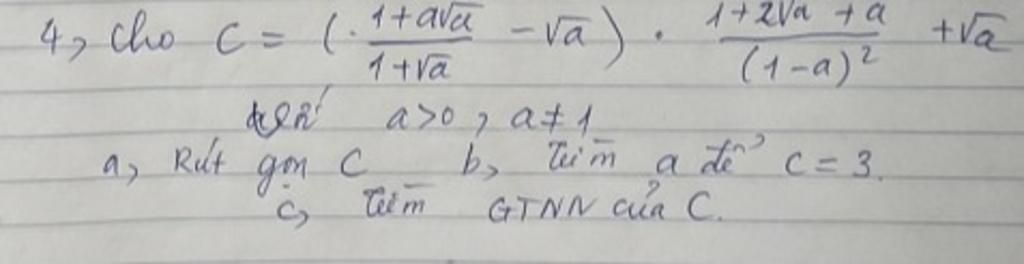 4, Cho C = (. \frac{1+a\sqrt{a}}{1+\sqrt{a}} - \sqrt{a} ) . \frac{1+2\sqrt{a}+a}{(1-a)^2} + \sqrt{a}
a>0, a≠1
a, Rút gọn C b, Tìm a để C = 3.
c, Tìm GTNN của C.